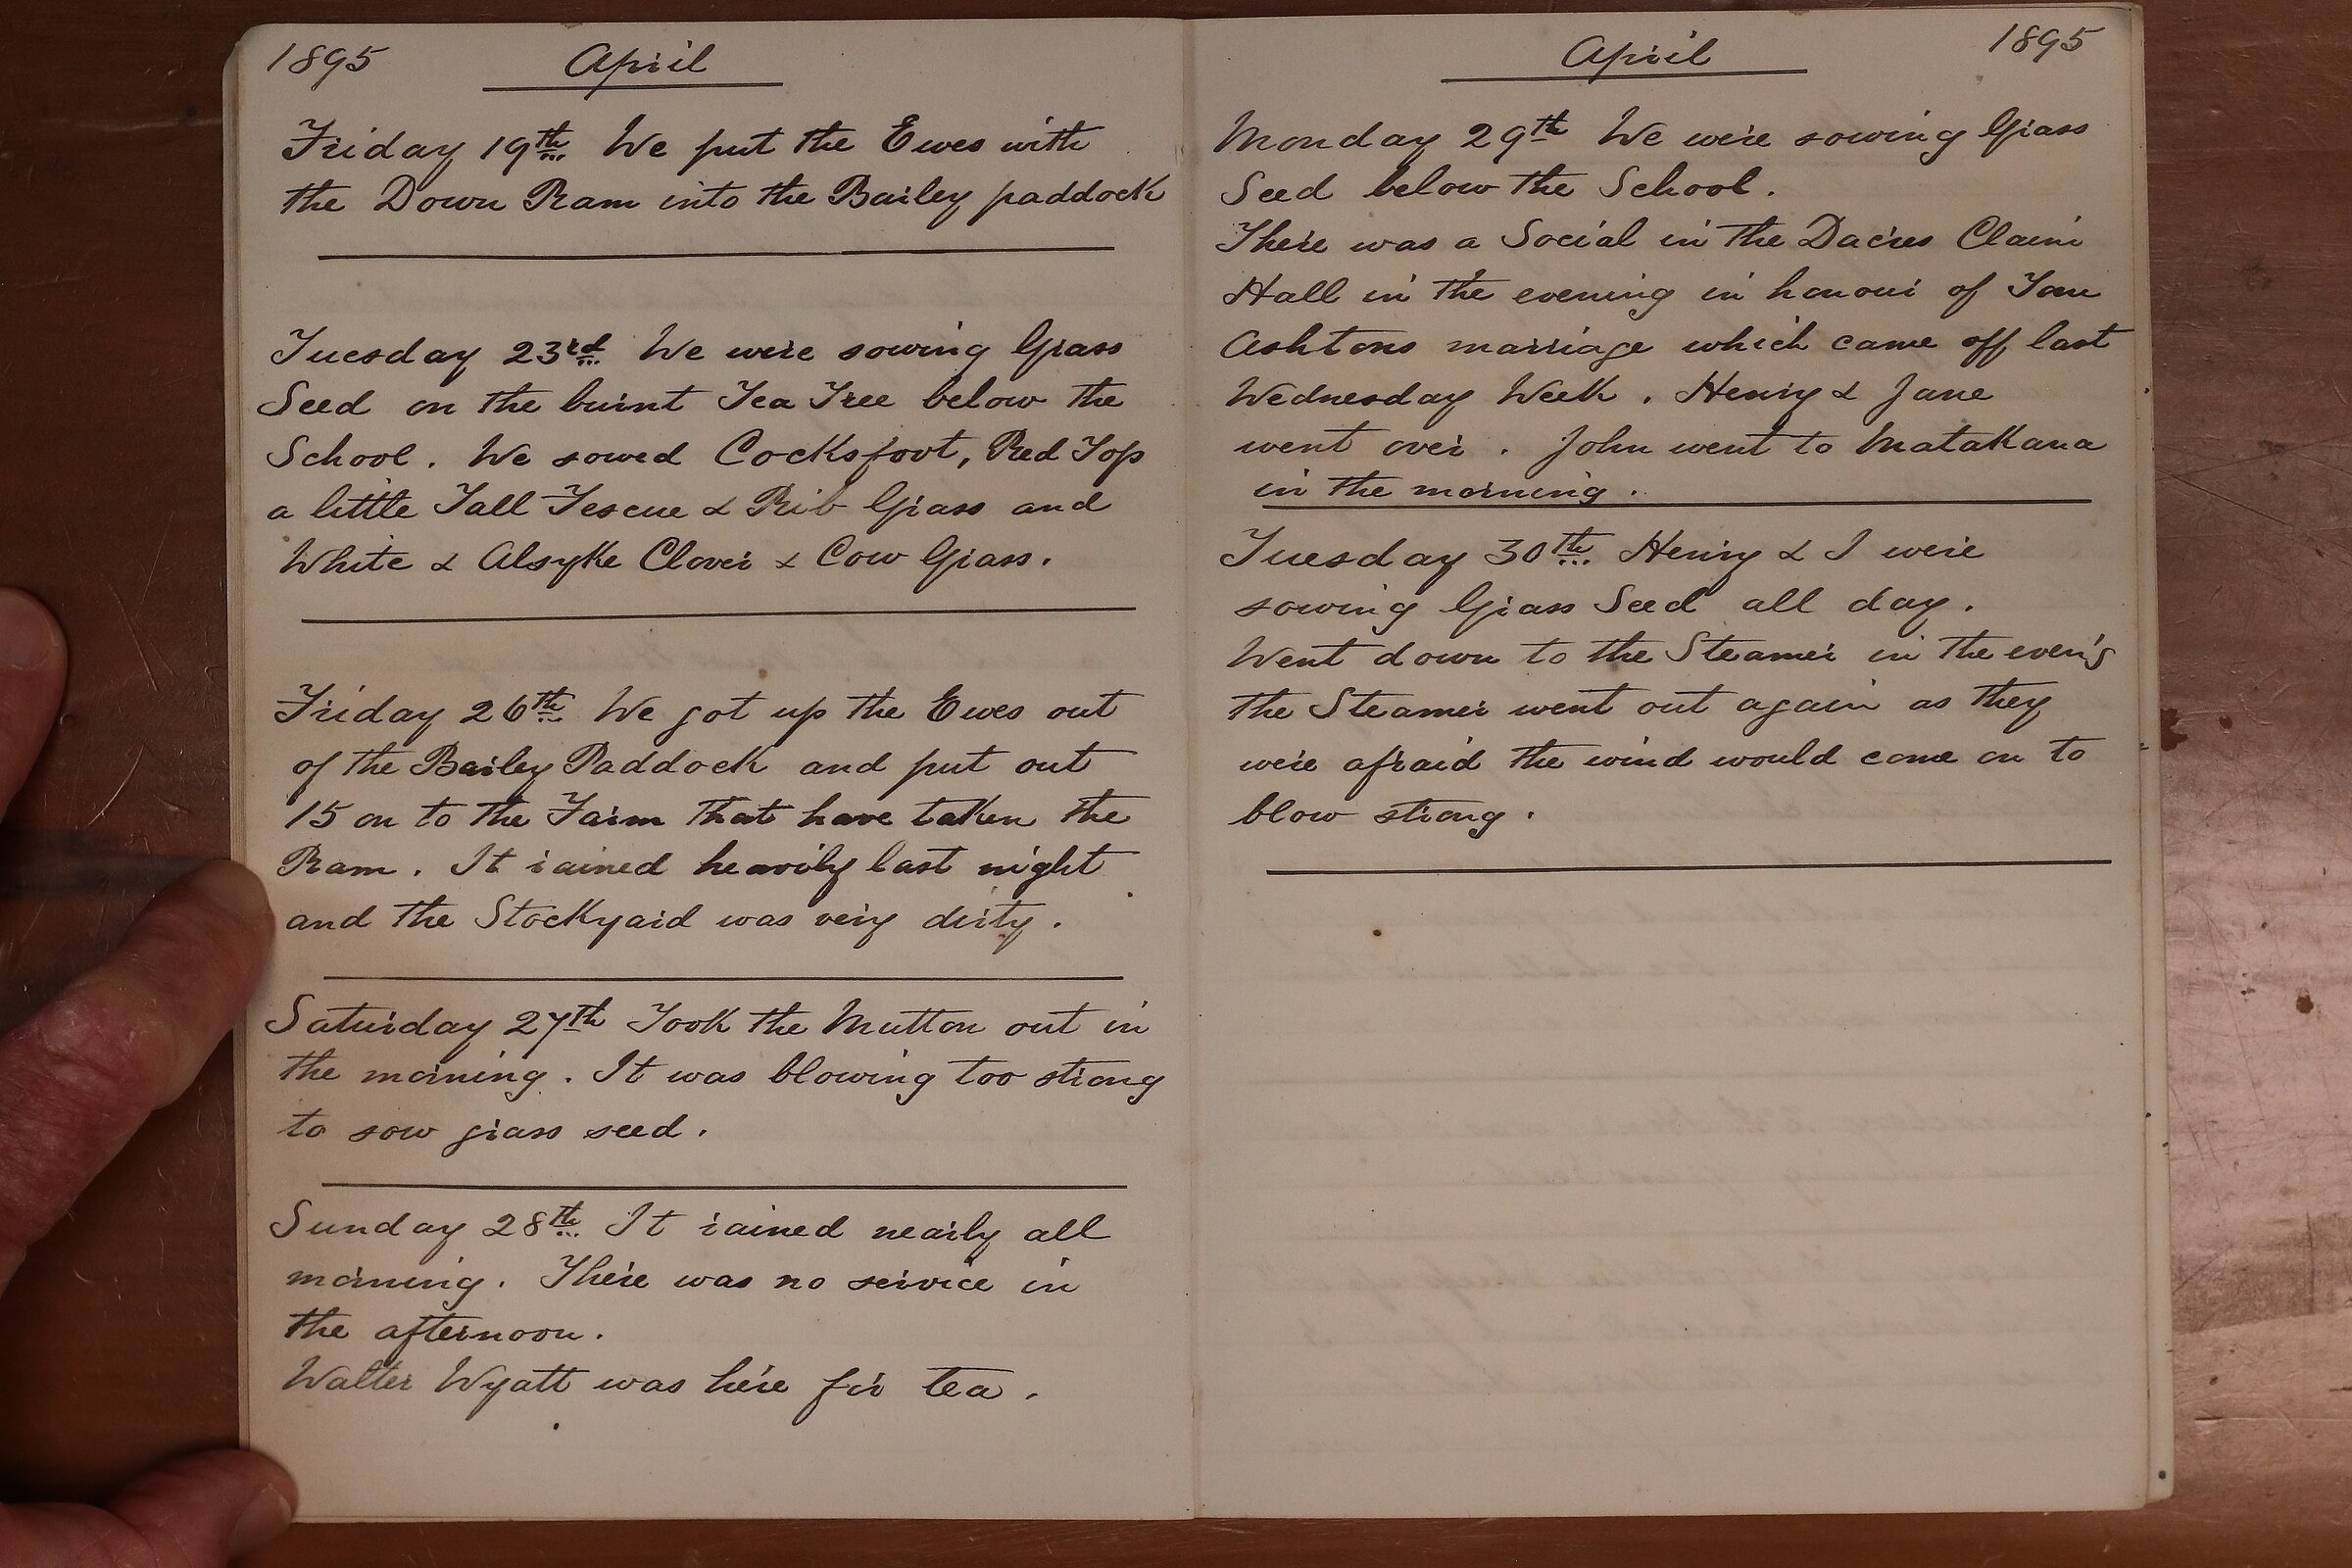 1895 April
Friday 19th We put the Ewes with
the Down Ram into the Bailey paddock
Tuesday 23rd We were sowing Grass
Seed on the burnt Tea Tree below the
School. We sowed Cocksfoot, Red Top
a little Tall Fescue & Rib Grass and
White & Alsyke Clover & Cow Grass.
Friday 26th We got up the Ewes out
of the Bailey Paddock and put out
15 on to the Farm that have taken the
Ram. It rained heavily last night
and the Stockyard was very dirty.
Saturday 27th Took the Mutton out in
the morning. It was blowing too strong
to sow grass seed.
Sunday 28th It rained nearly all
morning. There was no service in
the afternoon.
Walter Wyatt was here for tea.
April 1895
Monday 29th We were sowing Grass
Seed below the School.
There was a Social in the Dacres Claim
Hall in the evening in honour of Tom
Ashtons marriage which came off last
Wednesday Week. Henry & Jane
went over. John went to Matakana
in the morning.
Tuesday 30th Henry & I were
sowing Grass Seed all day.
Went down to the Steamer in the even'g
the Steamer went out again as they
were afraid the wind would come on to
blow strong.